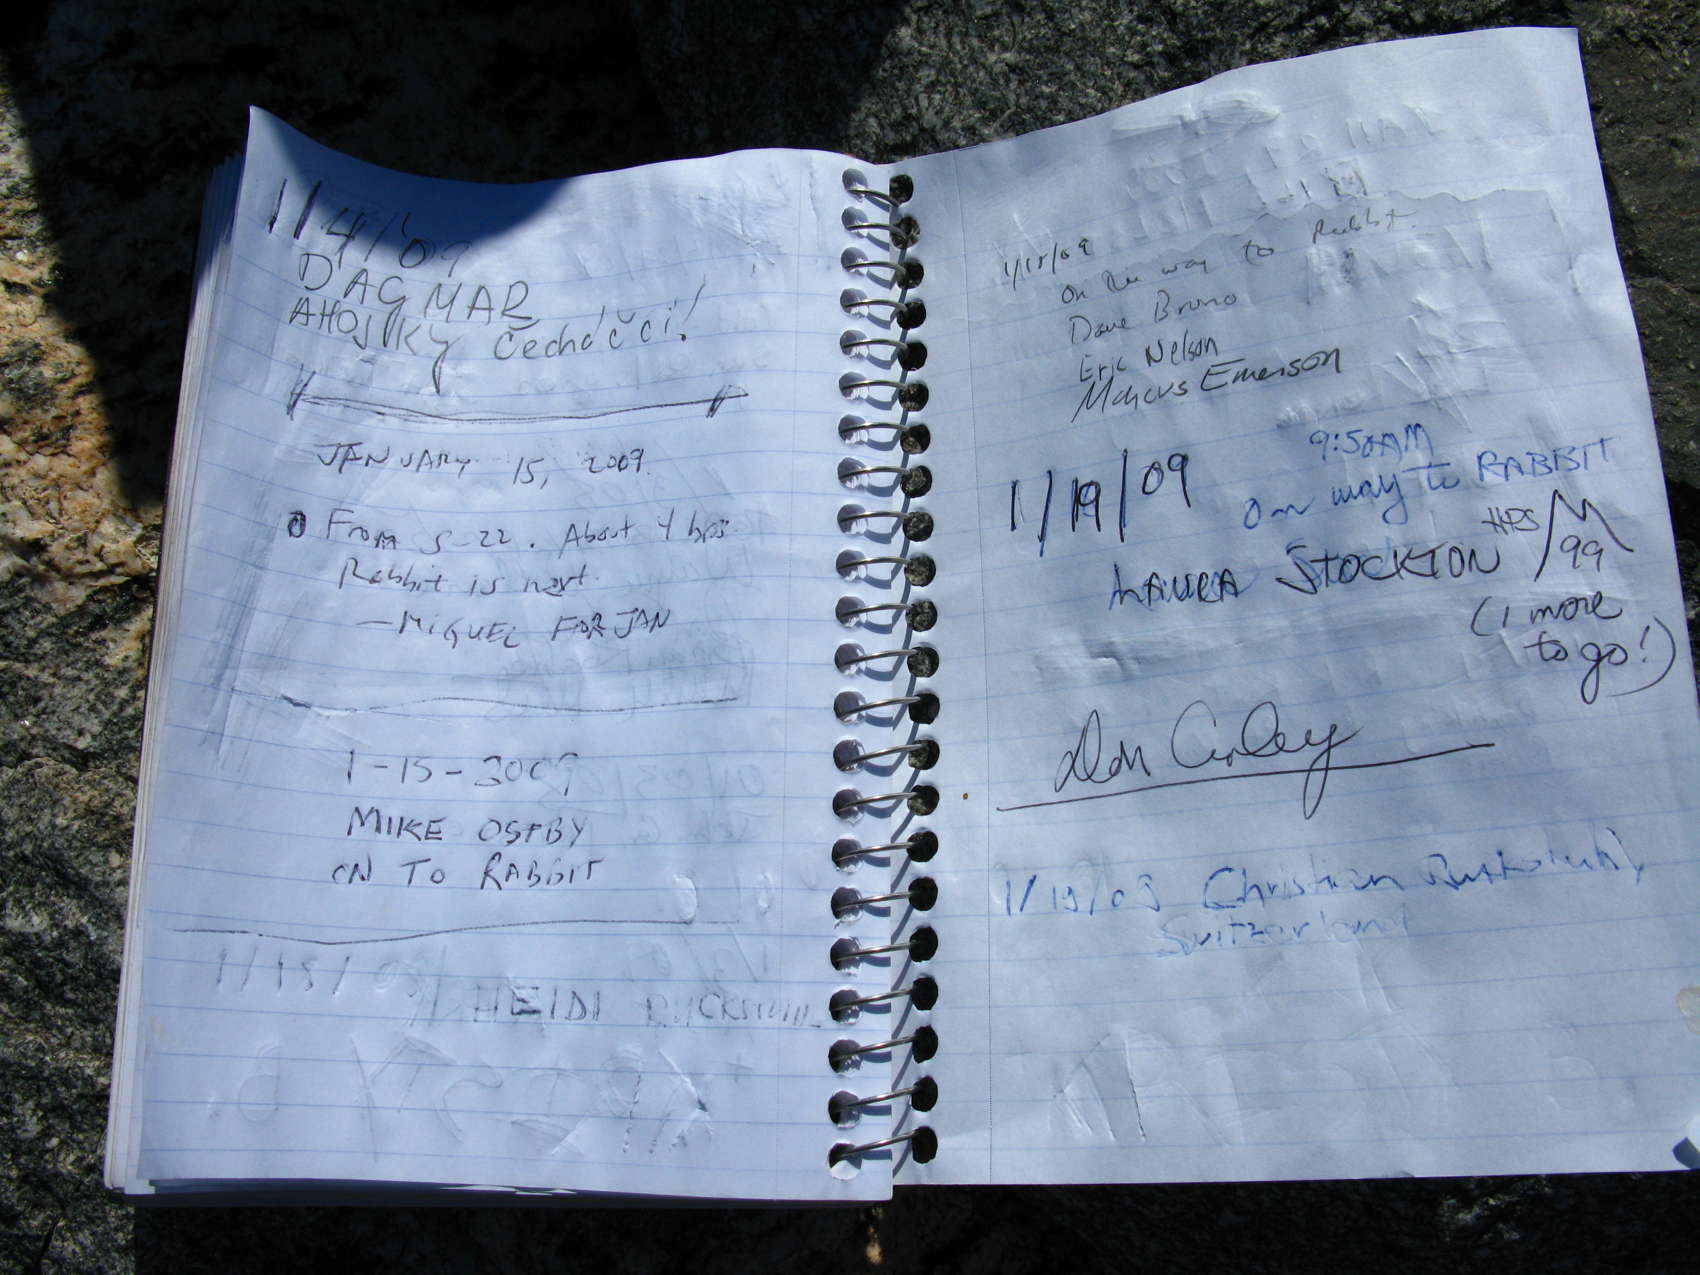 1/4/'09
DAGMAR
AHOJKY Čecháčci!
JANUARY 15, 2009.
From S-22. About 4 hrs.
Rabbit is next.
— MIGUEL FORJAN
1-15-2009
MIKE OSTBY
ON TO RABBIT
HEIDI
1/18/09
On the way to Rabbit.
Dave Bruno
Eric Nelson
Marcus Emerson
1/19/09 9:50AM
on way to RABBIT
LAURA STOCKTON HPS /M
99
(1 more
to go!)
Don
1/19/09 Christian
Switzerland